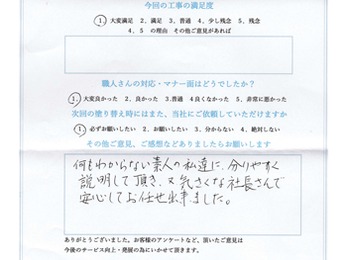 今回の工事の満足度
1. 大変満足 2. 満足 3. 普通 4. 少し残念 5. 残念
4. 5 の理由 その他ご意見があれば
職人さんの対応・マナー面はどうでしたか？
1. 大変良かった 2. 良かった 3. 普通 4 良くなかった 5. 非常に悪かった
次回の塗り替え時にはまた、当社にご依頼していただけますか
1. 必ずお願いしたい 2. お願いしたい 3. 分からない 4. 絶対しない
その他ご意見、ご感想などありましたらお願いします
何もわからない素人の私達に、分りやすく
説明して頂き、又気さくな社長さんで
安心してお任せ出来ました。
ありがとうございました。お客様のアンケートなど、頂いたご意見は
今後のサービス向上・発展の為にいかせて頂きます。